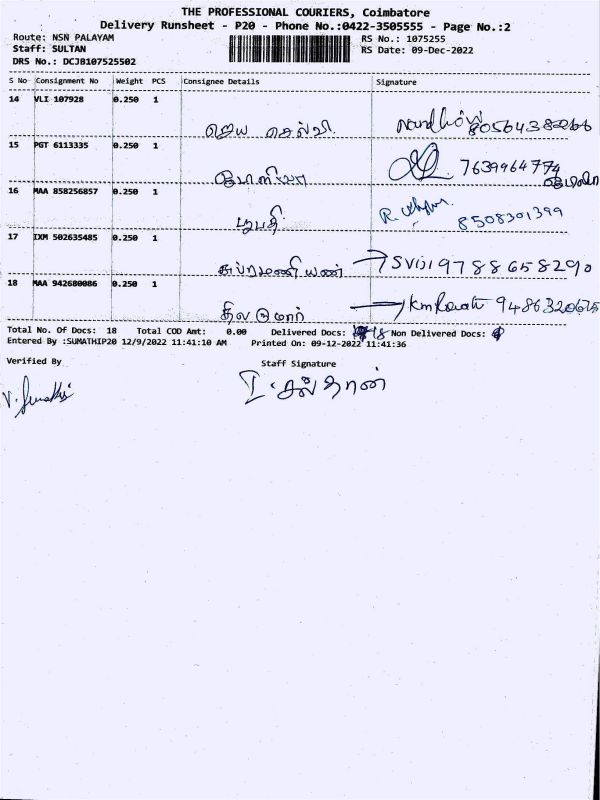 THE PROFESSIONAL COURIERS, Coimbatore
Delivery Runsheet - P20 - Phone No.:0422-3505555 - Page No.:2
Route: NSN PALAYAM RS No.: 1075255
Staff: SULTAN RS Date: 09-Dec-2022
DRS No.: DCJB107525502
S No Consignment No Weight PCS Consignee Details Signature
14 VLI 107928 0.250 1
ஜெய செல்வி
15 PGT 6113335 0.250 1
7639964774
16 MAA 858256857 0.250 1
பூபதி R. 8508301399
17 IXM 502635485 0.250 1
சுப்ரமணியண் → SViji 9788658290
18 MAA 942680086 0.250 1
திலகுமார் →
Total No. Of Docs: 18 Total COD Amt: 0.00 Delivered Docs: 18 Non Delivered Docs:
Entered By :SUMATHIP20 12/9/2022 11:41:10 AM Printed On: 09-12-2022 11:41:36
Verified By Staff Signature
V. Sumathi I. சுல்தான்